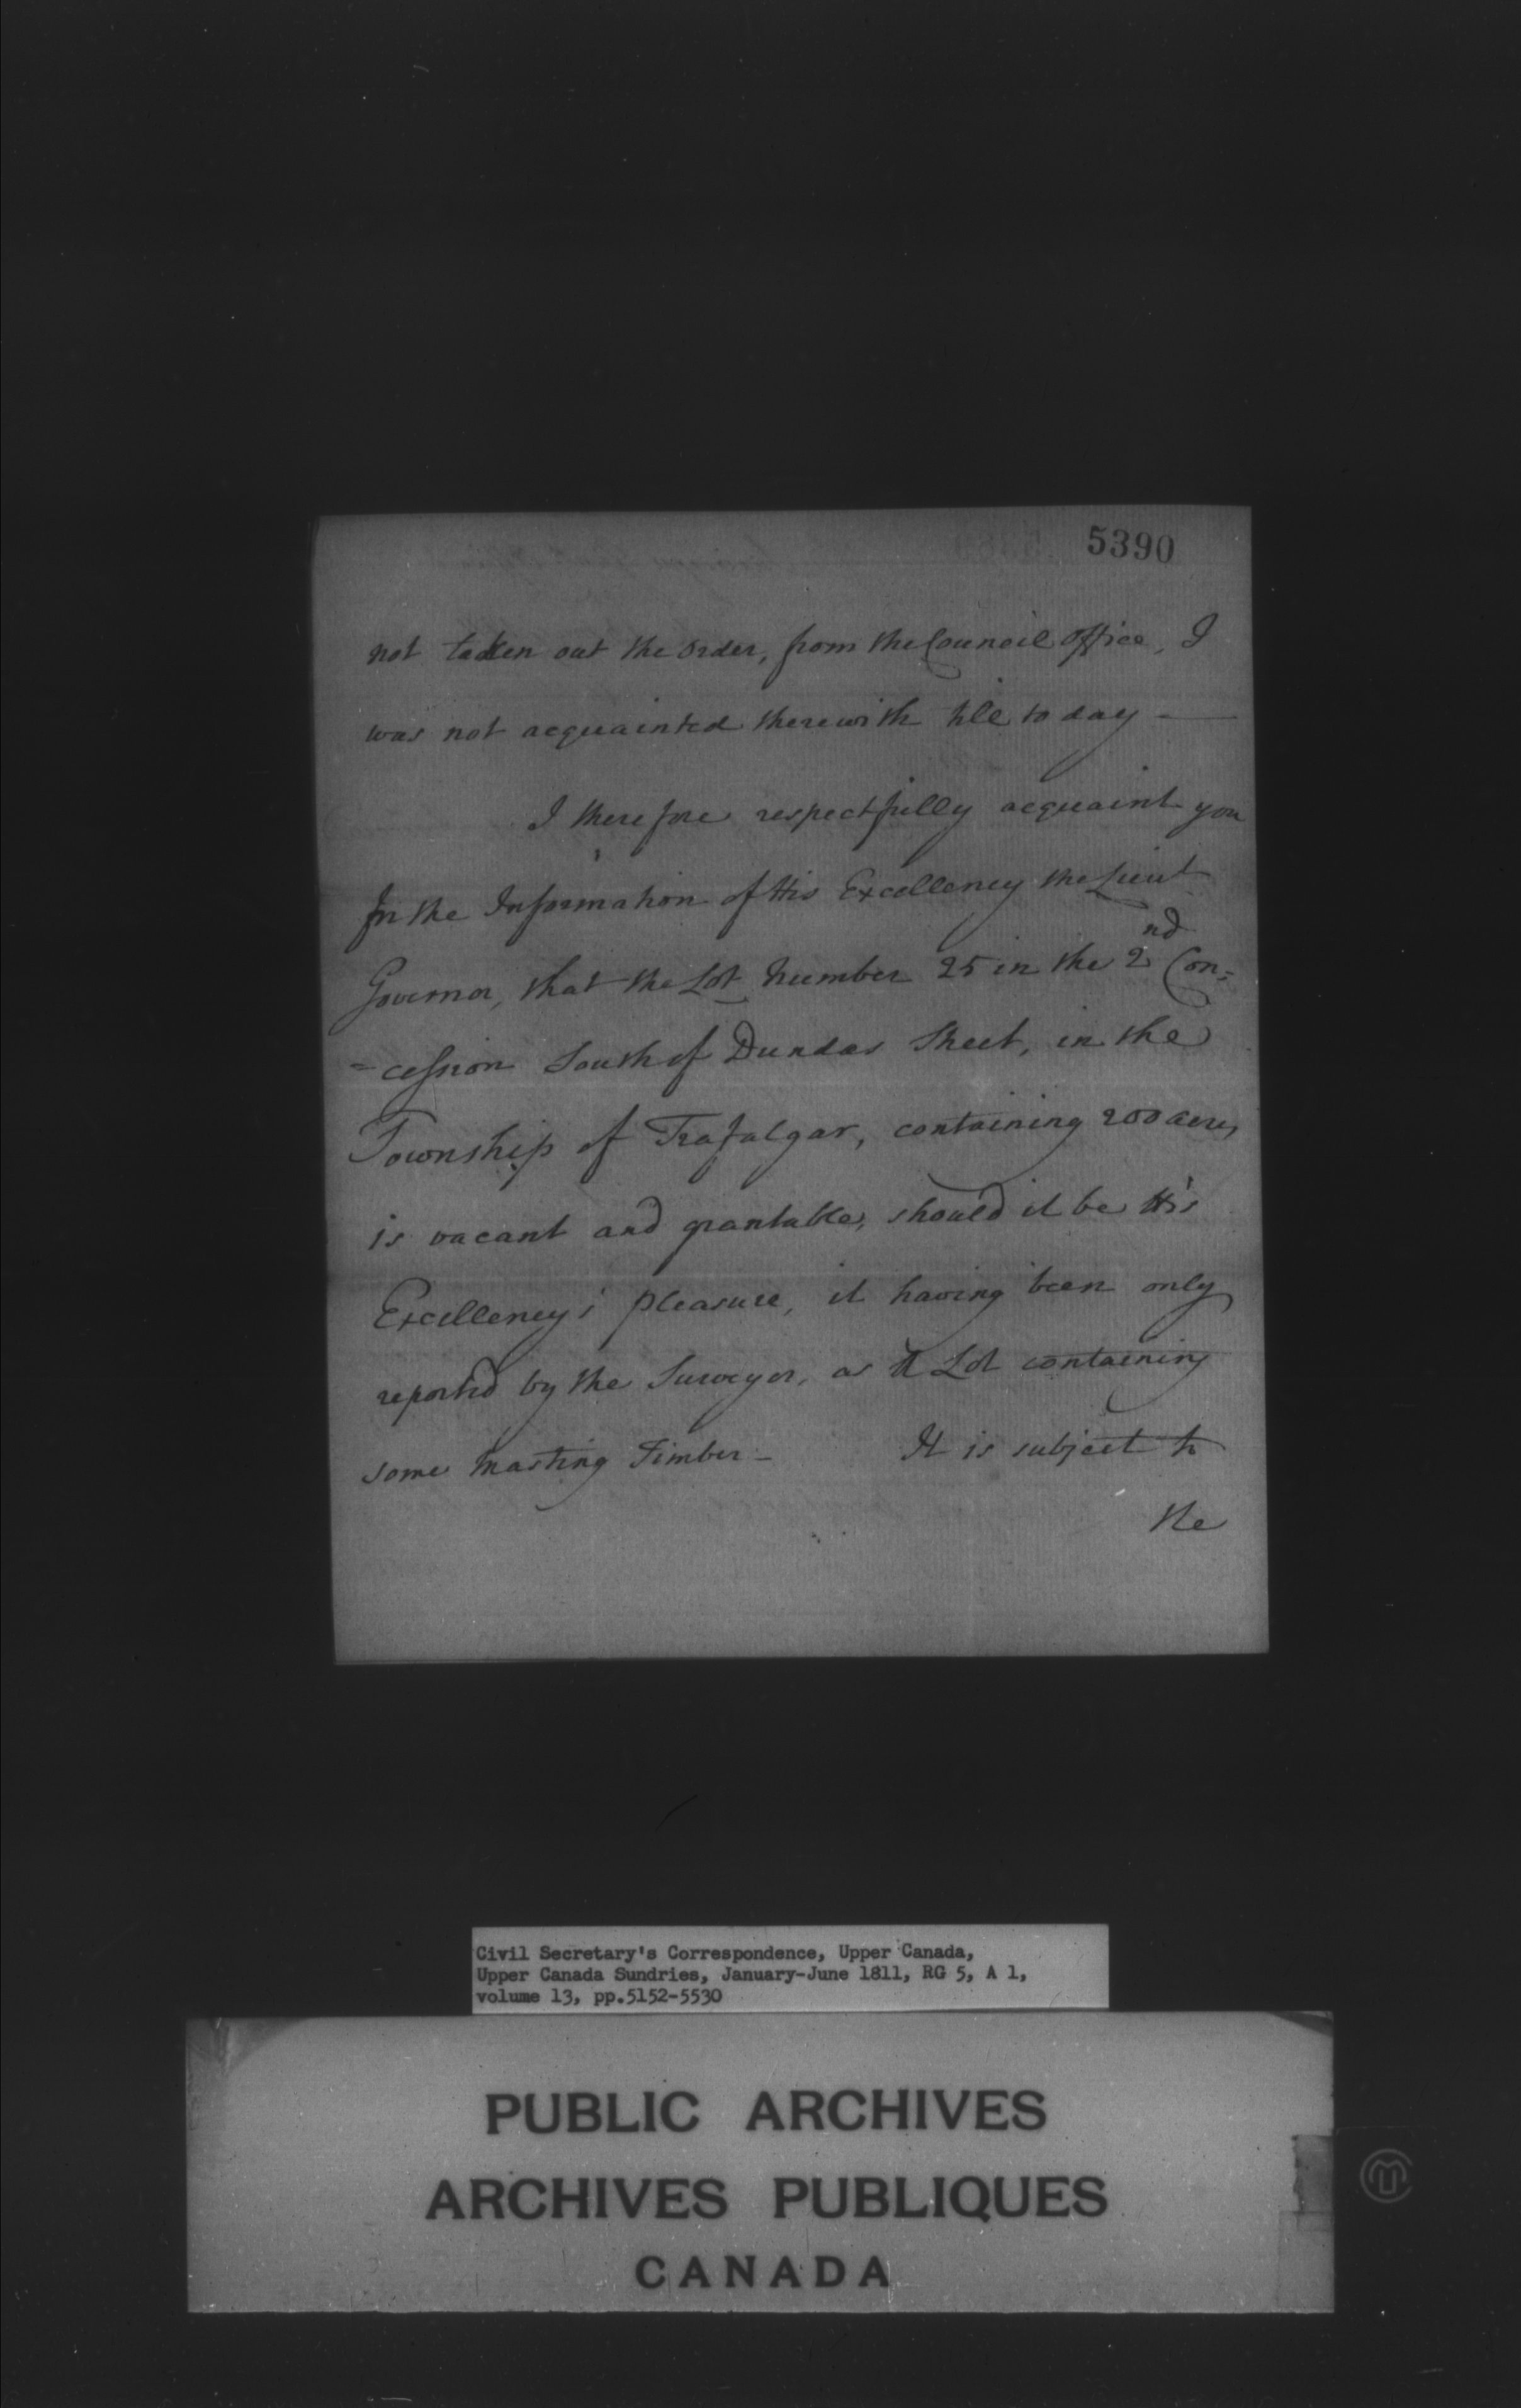 5390
not taken out the order, from the Council office, I
was not acquainted therewith till to day —
I therefore respectfully acquaint you
for the Information of His Excellency the Lieut
Governor, that the Lot Number 25 in the 2nd Con=
=cession South of Dundas Street, in the
Township of Trafalgar, containing 200 acres,
is vacant and grantable, should it be His
Excellency's pleasure, it having been only
reported by the Surveyor, as a Lot containing
some Masting Timber — It is subject to
the
Civil Secretary's Correspondence, Upper Canada,
Upper Canada Sundries, January-June 1811, RG 5, A 1,
volume 13, pp.5152-5530
PUBLIC ARCHIVES
ARCHIVES PUBLIQUES
CANADA